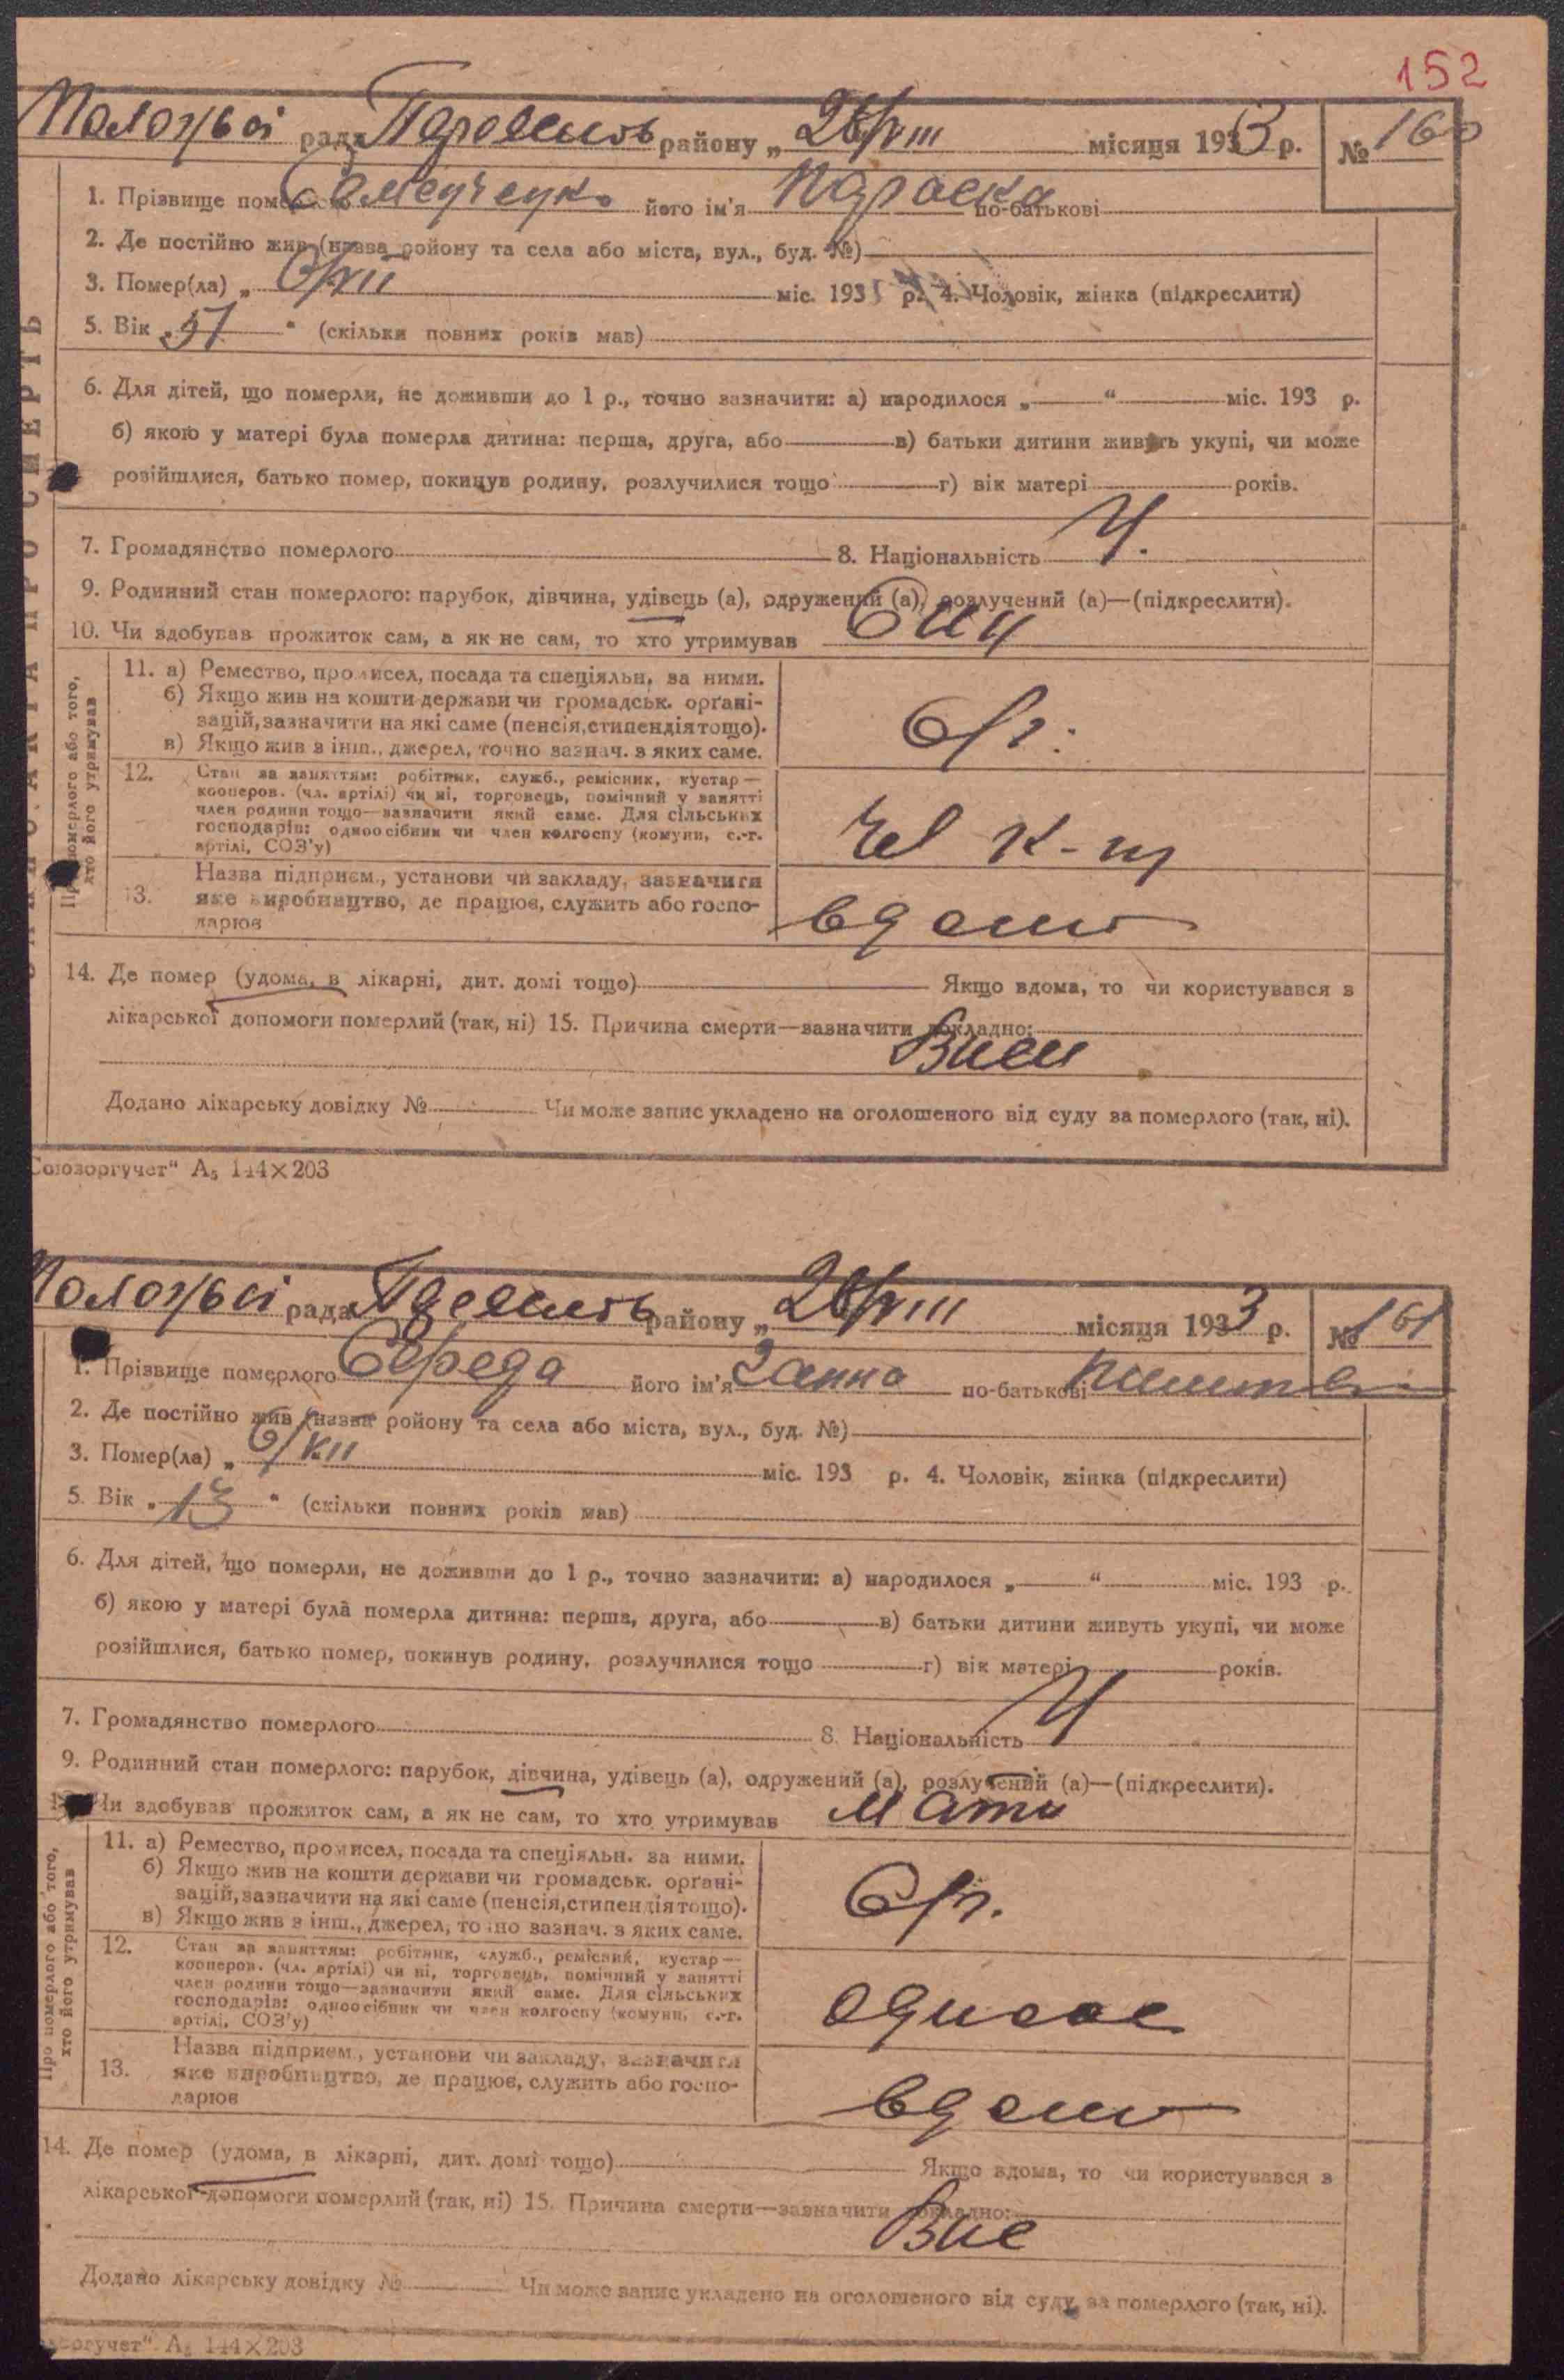 152
рада району „ 28/VIII місяця 1933 р. № 160
1. Прізвище його ім'я Параска по-батькові
2. Де постійно жив (назва ройону та села або міста, вул., буд. №)
3. Помер(ла) „ міс. 193 р. 4. Чоловік, жінка (підкреслити)
5. Вік „57" (скільки повних років мав)
6. Для дітей, що померли, не доживши до 1 р., точно зазначити: а) народилося „ " міс. 193 р.
б) якою у матері була померла дитина: перша, друга, або в) батьки дитини живуть укупі, чи може
розійшлися, батько помер, покинув родину, розлучилися тощо г) вік матері років.
7. Громадянство померлого 8. Національність У.
9. Родинний стан померлого: парубок, дівчина, удівець (а), одружений (а), розлучений (а)—(підкреслити).
10. Чи здобував прожиток сам, а як не сам, то хто утримував
Про померлого або того,
хто його утримував
11. а) Ремество, промисел, посада та спеціяльн. за ними.
б) Якщо жив на кошти держави чи громадськ. орґані-
зацій, зазначити на які саме (пенсія, стипендія тощо).
в) Якщо жив з інш., джерел, точно зазнач. з яких саме.
12. Стан за заняттям: робітник, служб., ремісник, кустар—
кооперов. (чл. артілі) чи ні, торговець, помічний у занятті
член родини тощо—зазначити який саме. Для сільських
господарів: одноосібник чи член колгоспу (комуни, с.-г.
артілі, СОЗ'у)
13. Назва підприєм., установи чи закладу, зазначити
яке виробництво, де працює, служить або госпо-
дарює
14. Де помер (удома, в лікарні, дит. домі тощо) Якщо вдома, то чи користувався з
лікарської допомоги померлий (так, ні) 15. Причина смерти—зазначити докладно:
Додано лікарську довідку № Чи може запис укладено на оголошеного від суду за померлого (так, ні).
Союзоргучет" А₅ 144×203
рада району „ 28/VIII місяця 1933 р. № 161
1. Прізвище померлого Середа його ім'я Ганна по-батькові
2. Де постійно жив (назва ройону та села або міста, вул., буд. №)
3. Помер(ла) „ міс. 193 р. 4. Чоловік, жінка (підкреслити)
5. Вік „13" (скільки повних років мав)
6. Для дітей, що померли, не доживши до 1 р., точно зазначити: а) народилося „ " міс. 193 р.
б) якою у матері була померла дитина: перша, друга, або в) батьки дитини живуть укупі, чи може
розійшлися, батько помер, покинув родину, розлучилися тощо г) вік матері років.
7. Громадянство померлого 8. Національність У
9. Родинний стан померлого: парубок, дівчина, удівець (а), одружений (а), розлучений (а)—(підкреслити).
Чи здобував прожиток сам, а як не сам, то хто утримував мати
Про померлого або того,
хто його утримував
11. а) Ремество, промисел, посада та спеціяльн. за ними.
б) Якщо жив на кошти держави чи громадськ. орґані-
зацій, зазначити на які саме (пенсія, стипендія тощо).
в) Якщо жив з інш., джерел, точно зазнач. з яких саме.
12. Стан за заняттям: робітник, служб., ремісник, кустар—
кооперов. (чл. артілі) чи ні, торговець, помічний у занятті
член родини тощо—зазначити який саме. Для сільських
господарів: одноосібник чи член колгоспу (комуни, с.-г.
артілі, СОЗ'у)
13. Назва підприєм., установи чи закладу, зазначити
яке виробництво, де працює, служить або госпо-
дарює
14. Де помер (удома, в лікарні, дит. домі тощо) Якщо вдома, то чи користувався з
лікарської допомоги померлий (так, ні) 15. Причина смерти—зазначити докладно:
Додано лікарську довідку № Чи може запис укладено на оголошеного від суду за померлого (так, ні).
А₅ 144×203